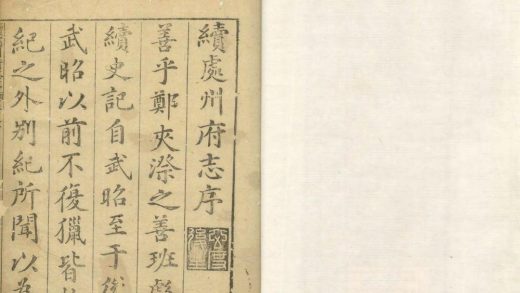 續處州府志序
善乎鄭夾漈之善班彪
續史記自武昭至于
武昭以前不復獵皆
紀之外别紀所聞以為